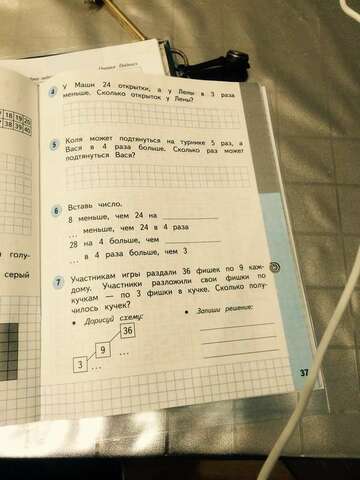 18 19 20
38 39 40
4 У Маши 24 открытки, а у Лены в 3 раза
меньше. Сколько открыток у Лены?
5 Коля может подтянуться на турнике 5 раз, а
Вася в 4 раза больше. Сколько раз может
подтянуться Вася?
6 Вставь число.
8 меньше, чем 24 на
... меньше, чем 24 в 4 раза
28 на 4 больше, чем
... в 4 раза больше, чем 3
7 Участникам игры раздали 36 фишек по 9 каж-
дому. Участники разложили свои фишки по
кучкам — по 3 фишки в кучке. Сколько полу-
чилось кучек?
• Дорисуй схему:
• Запиши решение:
36
9 ...
3 ...
37
голу-
серый